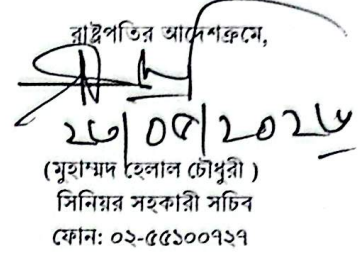 রাষ্ট্রপতির আদেশক্রমে,
(মুহাম্মদ হেলাল চৌধুরী )
সিনিয়র সহকারী সচিব
ফোন: ০২-৫৫১০০৭২৭